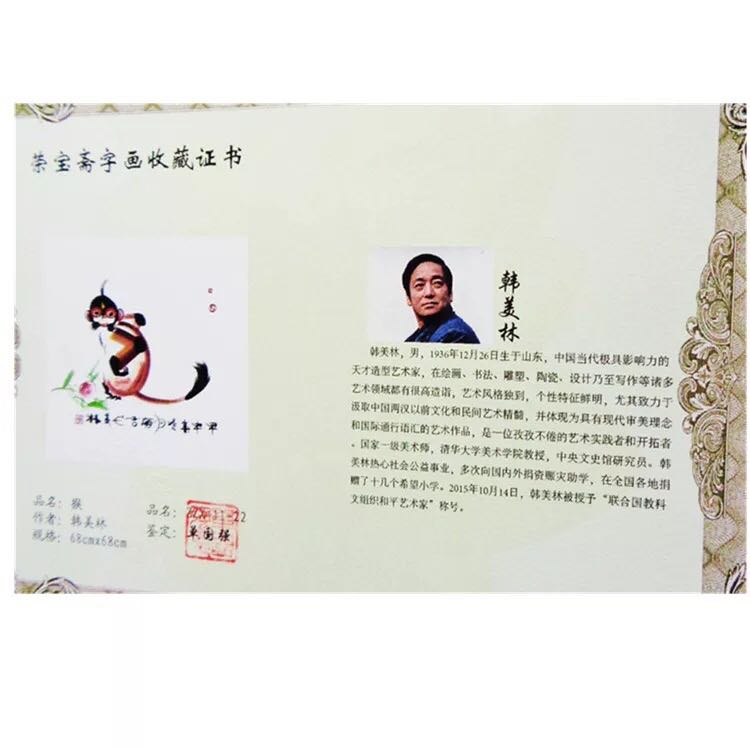 荣宝斋字画收藏证书
韩美林
韩美林，男，1936年12月26日生于山东，中国当代极具影响力的
天才造型艺术家，在绘画、书法、雕塑、陶瓷、设计乃至写作等诸多
艺术领域都有很高造诣，艺术风格独到，个性特征鲜明，尤其致力于
汲取中国两汉以前文化和民间艺术精髓，并体现为具有现代审美理念
和国际通行语汇的艺术作品，是一位孜孜不倦的艺术实践者和开拓者
。国家一级美术师，清华大学美术学院教授，中央文史馆研究员。韩
美林热心社会公益事业，多次向国内外捐资赈灾助学，在全国各地捐
赠了十几个希望小学。2015年10月14日，韩美林被授予“联合国教科
文组织和平艺术家”称号。
品名：猴
作者：韩美林
规格：68cmx68cm
品名：
鉴定：单国强